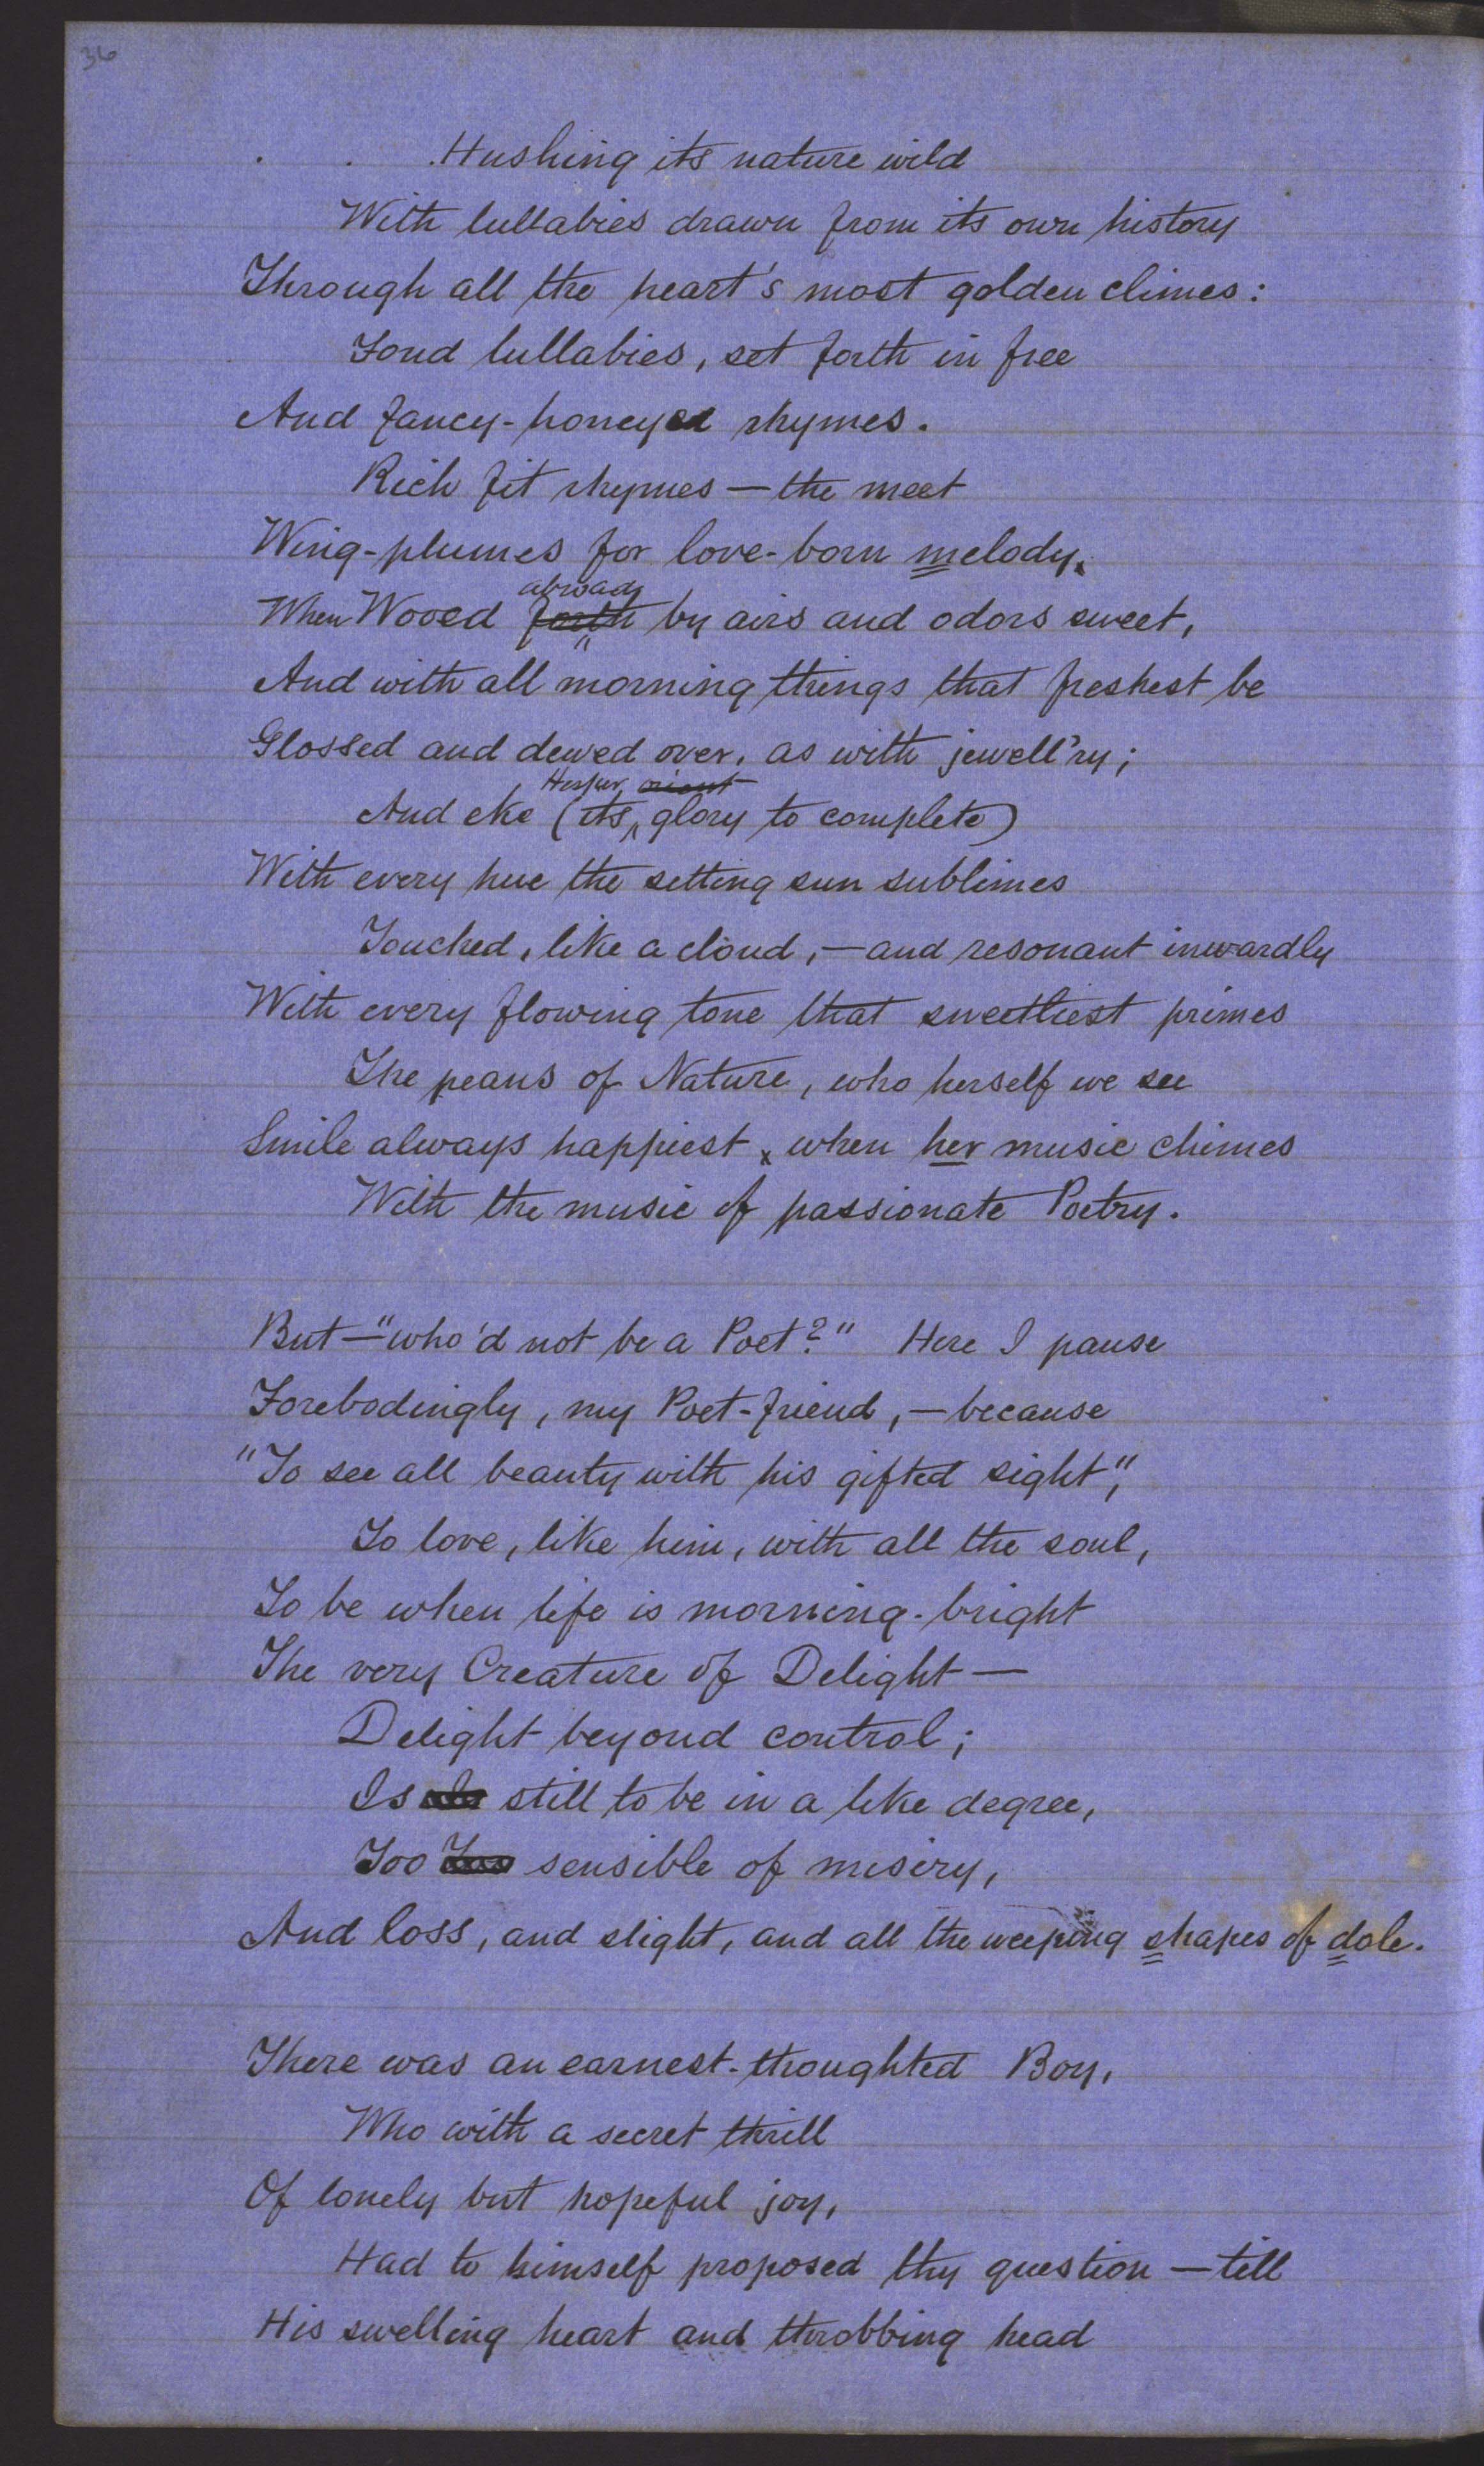 36
Hushing its nature wild
With lullabies drawn from its own history
Through all the heart's most golden climes:
Fond lullabies, set forth in free
And fancy-honeyed rhymes.
Rich fit rhymes — the meet
Wing-plumes for love-born melody,
abroad
When Wooed forth by airs and odors sweet,
And with all morning things that freshest be
Glossed and dewed over, as with jewell'ry;
Hesper orient
And eke (its glory to complete)
With every hue the setting sun sublimes
Touched, like a cloud, — and resonant inwardly
With every flowing tone that sweetliest primes
The peans of Nature, who herself we see
Smile always happiest, when her music chimes
With the music of passionate Poetry.
But — "who'd not be a Poet?" Here I pause
Forebodingly, my Poet-friend, — because
"To see all beauty with his gifted sight",
To love, like him, with all the soul,
To be when life is morning-bright
The very Creature of Delight —
Delight beyond control;
Is still to be in a like degree,
Too sensible of misery,
And loss, and slight, and all the weeping shapes of dole.
There was an earnest-thoughted Boy,
Who with a secret thrill
Of lonely but hopeful joy,
Had to himself proposed thy question — till
His swelling heart and throbbing head